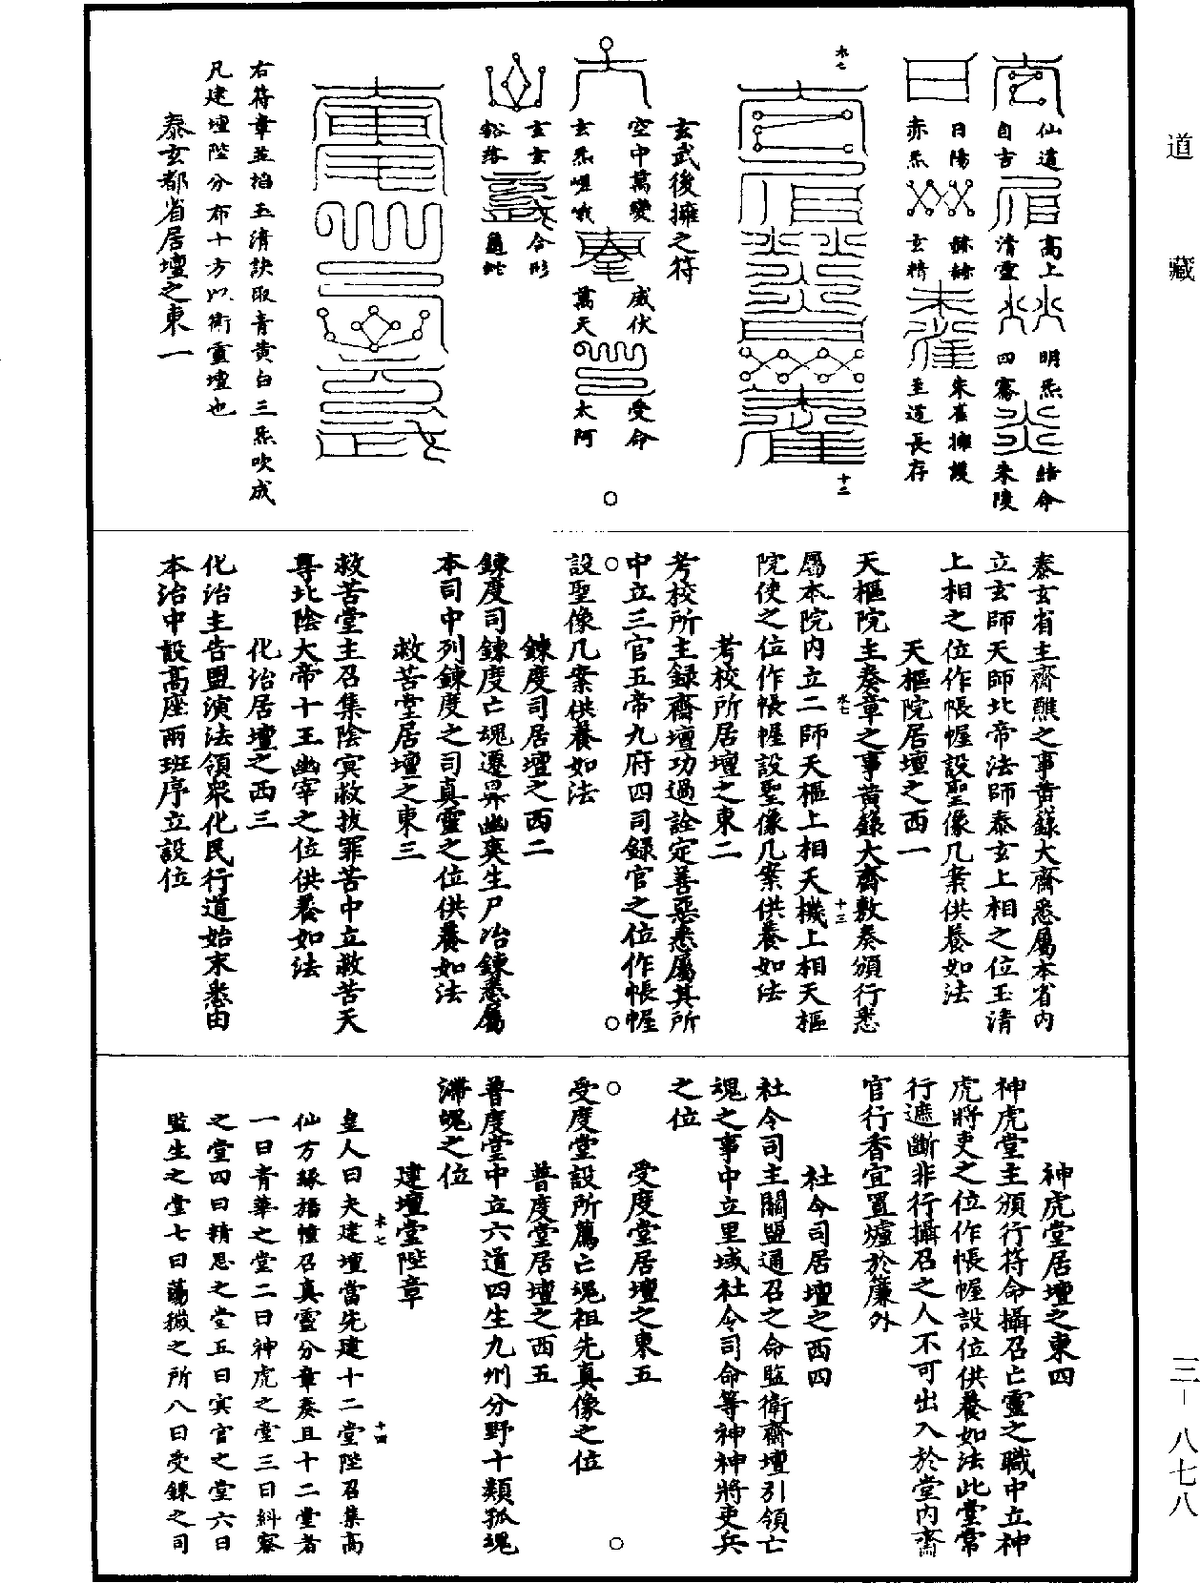 道藏
仙道　高上　明炁　結命
自古　清靈　四騫　朱陵
日陽　赫赫　朱雀擁護
赤炁　玄精　至道長存
水七
十二
玄武後擁之符
空中萬變　威伏　受命
玄炁嵯峨　萬天　太阿
玄玄　合形
谿落　龜蛇
右符章並掐玉清訣取青黃白三炁吹成
凡建壇陛分布十方以衛靈壇也
泰玄都省居壇之東一
泰玄省主齋醮之事黃籙大齋悉屬本省內
立玄師天師北帝法師泰玄上相之位玉清
上相之位作帳幄設聖像几案供養如法
天樞院居壇之西一
天樞院主奏章之事黃籙大齋敷奏頒行悉
水七
十三
屬本院內立二師天樞上相天機上相天樞
院使之位作帳幄設聖像几案供養如法
考校所居壇之東二
考校所主録齋壇功過詮定善惡悉屬其所
中立三官五帝九府四司録官之位作帳幄
設聖像几案供養如法
鍊度司居壇之西二
鍊度司鍊度亡魂遷昇幽爽生尸冶鍊悉屬
本司中列鍊度之司真靈之位供養如法
救苦堂居壇之東三
救苦堂主召集陰冥救拔罪苦中立救苦天
尊北陰大帝十王幽宰之位供養如法
化治居壇之西三
化治主告盟演法領眾化民行道始末悉由
本治中設高座兩班序立設位
神虎堂居壇之東四
神虎堂主頒行符命攝召亡靈之職中立神
虎將吏之位作帳幄設位供養如法此堂常
行遮斷非行攝召之人不可出入於堂內齋
官行香宜置爐於簾外
社令司居壇之西四
社令司主關盟通召之命監衛齋壇引領亡
魂之事中立里域社令司命等神神將吏兵
之位
受度堂居壇之東五
受度堂設所薦亡魂祖先真像之位
普度堂居壇之西五
普度堂中立六道四生九州分野十類孤魂
滯魄之位
建壇堂陛章
水七
十四
皇人曰夫建壇當先建十二堂陛召集高
仙方緣播幢召真靈分章奏且十二堂者
一曰青華之堂二曰神虎之堂三曰糾察
之堂四曰精思之堂五曰寘官之堂六曰
監生之堂七曰蕩穢之所八曰受鍊之司
三－八七八